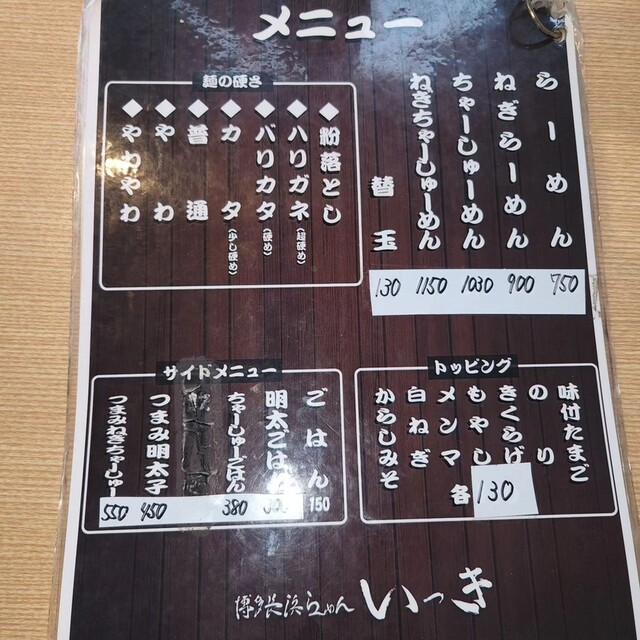 メニュー
らーめん 750
ねぎらーめん 900
ちゃーしゅーめん 1030
ねぎちゃーしゅーめん 1150
替玉 130
麺の硬さ
◆粉落とし
◆ハリガネ(超硬め)
◆バリカタ(硬め)
◆カタ(少し硬め)
◆普通
◆やわ
◆やわやわ
トッピング
味付たまご
のり
きくらげ
もやし
メンマ
白ねぎ
からしみそ
各130
サイドメニュー
ごはん 150
明太ごはん
ちゃーしゅーごはん 380
つまみ明太子 450
つまみねぎちゃーしゅー 550
博多長浜らーめん いっき